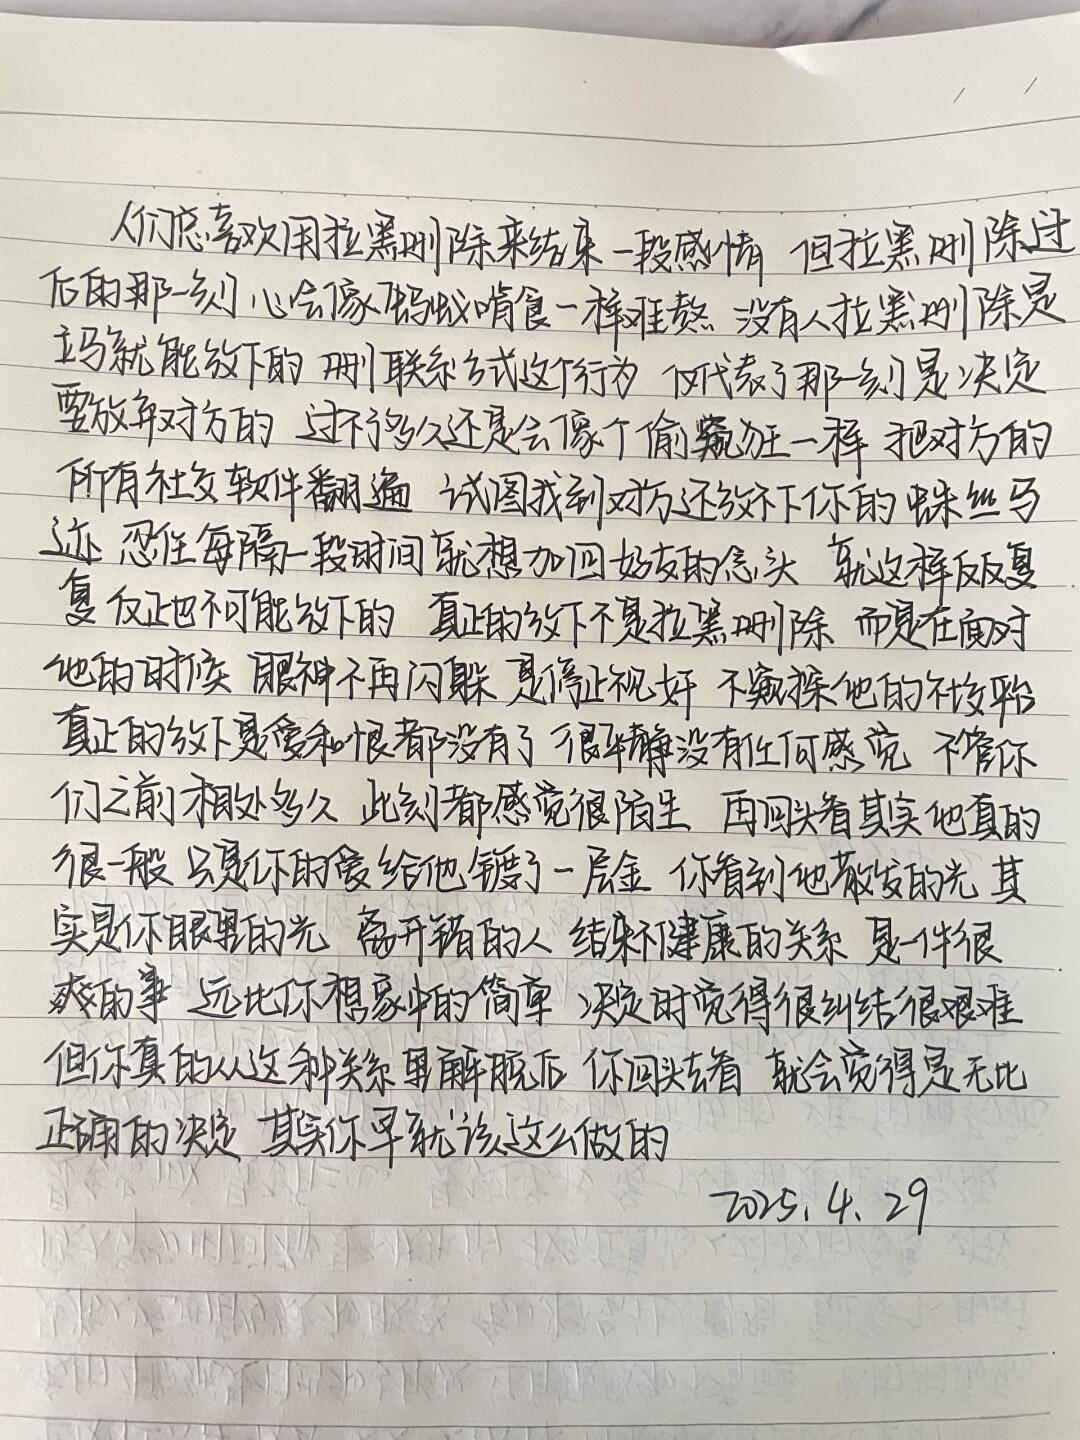 人们总喜欢用拉黑删除来结束一段感情 但拉黑删除过
后的那一刻 心会像蚂蚁啃食一样难熬 没有人拉黑删除是
立马就能放下的 删联系方式这个行为 仅代表了那一刻是决定
要放弃对方的 过不了多久还是会像个偷窥狂一样 把对方的
所有社交软件翻遍 试图找到对方还放不下你的蛛丝马
迹 忍住每隔一段时间就想加回好友的念头 就这样反反复
复 反正也不可能放下的 真正的放下不是拉黑删除 而是在面对
他的时候 眼神不再闪躲 是停止视奸 不窥探他的社交平台
真正的放下是爱和恨都没有了 很平静没有任何感觉 不管你
们之前相处多久 此刻都感觉很陌生 再回头看其实他真的
很一般 只是你的爱给他镀了一层金 你看到他散发的光 其
实是你眼里的光 离开错的人 结束不健康的关系 是一件很
爽的事 远比你想象中的简单 决定时觉得很纠结很艰难
但你真的从这种关系里解脱后 你回头去看 就会觉得是无比
正确的决定 其实你早就该这么做的
2025.4.29